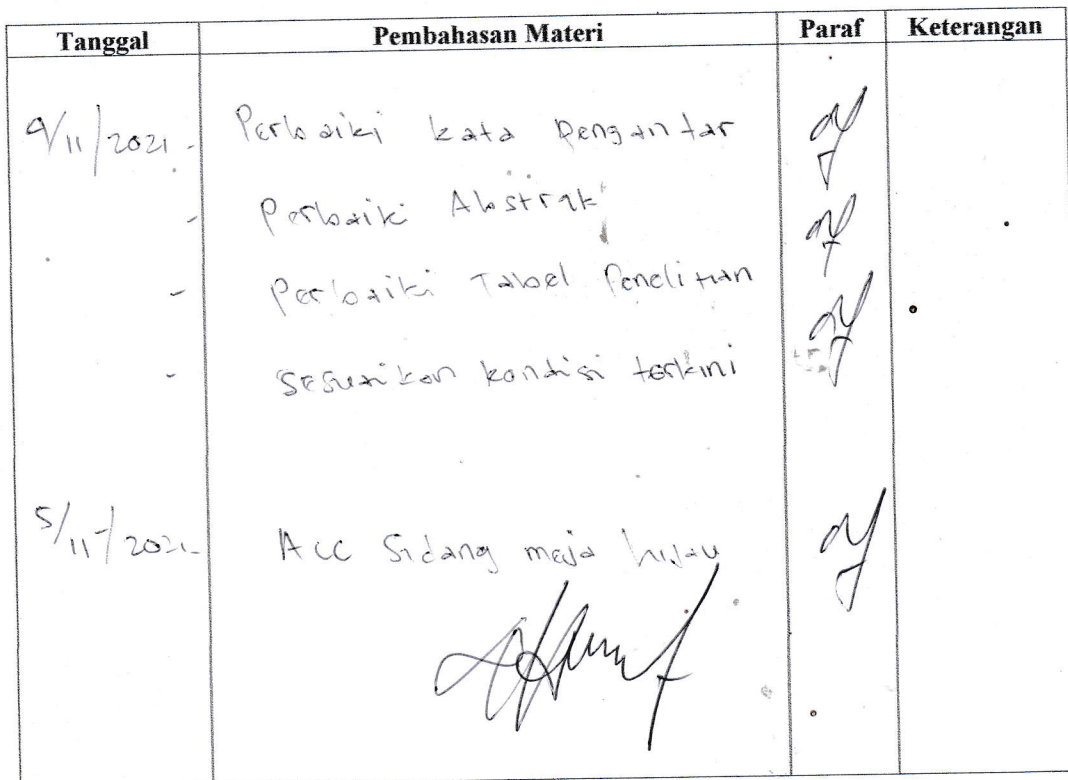 Tanggal Pembahasan Materi Paraf Keterangan
4/11/2021 - Perbaiki kata pengantar
- Perbaiki Abstrak
- Perbaiki Tabel Penelitian
- Sesuaikan kondisi terkini
5/11/2021 - Acc Sidang meja hijau